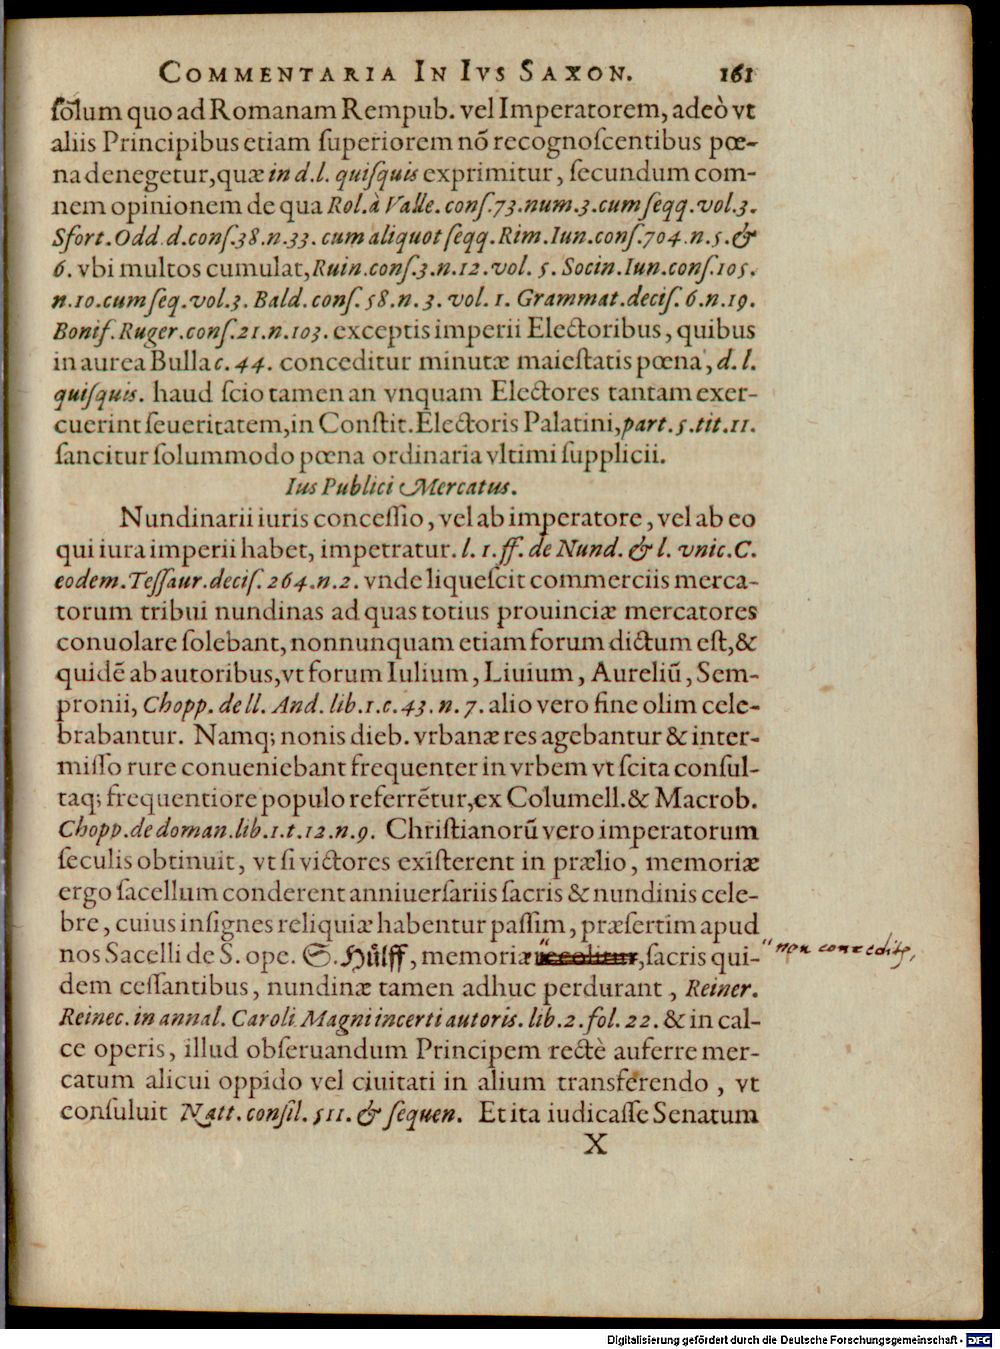 COMMENTARIA IN IVS SAXON. 161
ſolum quo ad Romanam Rempub. vel Imperatorem, adeò vt
aliis Principibus etiam ſuperiorem nō recognoſcentibus pœ-
na denegetur, quæ in d.l. quiſquis exprimitur, ſecundum com-
nem opinionem de qua Rol. à Valle. conſ.73. num.3. cum ſeqq. vol.3.
Sfort. Odd. d. conſ.38. n.33. cum aliquot ſeqq. Rim. Iun. conſ.704. n.5. &
6. vbi multos cumulat, Ruin. conſ.3. n.12. vol. 5. Socin. Iun. conſ.105.
n.10. cum ſeq. vol.3. Bald. conſ. 58. n. 3. vol. 1. Grammat. deciſ. 6. n.19.
Bonif. Ruger. conſ.21. n.103. exceptis imperii Electoribus, quibus
in aurea Bulla c. 44. conceditur minutæ maieſtatis pœna, d. l.
quiſquis. haud ſcio tamen an vnquam Electores tantam exer-
cuerint ſeueritatem, in Conſtit. Electoris Palatini, part. 5. tit. 11.
ſancitur ſolummodo pœna ordinaria vltimi ſupplicii.
Ius Publici Mercatus.
Nundinarii iuris conceſſio, vel ab imperatore, vel ab eo
qui iura imperii habet, impetratur. l. 1. ff. de Nund. & l. vnic. C.
eodem. Teſſaur. deciſ. 264. n. 2. vnde liqueſcit commerciis merca-
torum tribui nundinas ad quas totius prouinciæ mercatores
conuolare ſolebant, nonnunquam etiam forum dictum eſt, &
quidē ab autoribus, vt forum Iulium, Liuium, Aureliū, Sem-
pronii, Chopp. de ll. And. lib.1. c. 43. n. 7. alio vero fine olim cele-
brabantur. Namq; nonis dieb. vrbanæ res agebantur & inter-
miſſo rure conueniebant frequenter in vrbem vt ſcita conſul-
taq; frequentiore populo referrētur, ex Columell. & Macrob.
Chopp. de doman. lib.1. t.12. n.9. Chriſtianorū vero imperatorum
ſeculis obtinuit, vt ſi victores exiſterent in prælio, memoriæ
ergo ſacellum conderent anniuerſariis ſacris & nundinis cele-
bre, cuius inſignes reliquiæ habentur paſſim, præſertim apud
nos Sacelli de S. ope. S. Hülff, memoriæ, ſacris qui- " non
dem ceſſantibus, nundinæ tamen adhuc perdurant, Reiner.
Reinec. in annal. Caroli Magni incerti autoris. lib. 2. fol. 22. & in cal-
ce operis, illud obſeruandum Principem rectè auferre mer-
catum alicui oppido vel ciuitati in alium transferendo, vt
conſuluit Natt. conſil. 511. & ſequen. Et ita iudicaſſe Senatum
X
Digitalisierung gefördert durch die Deutsche Forschungsgemeinschaft - DFG